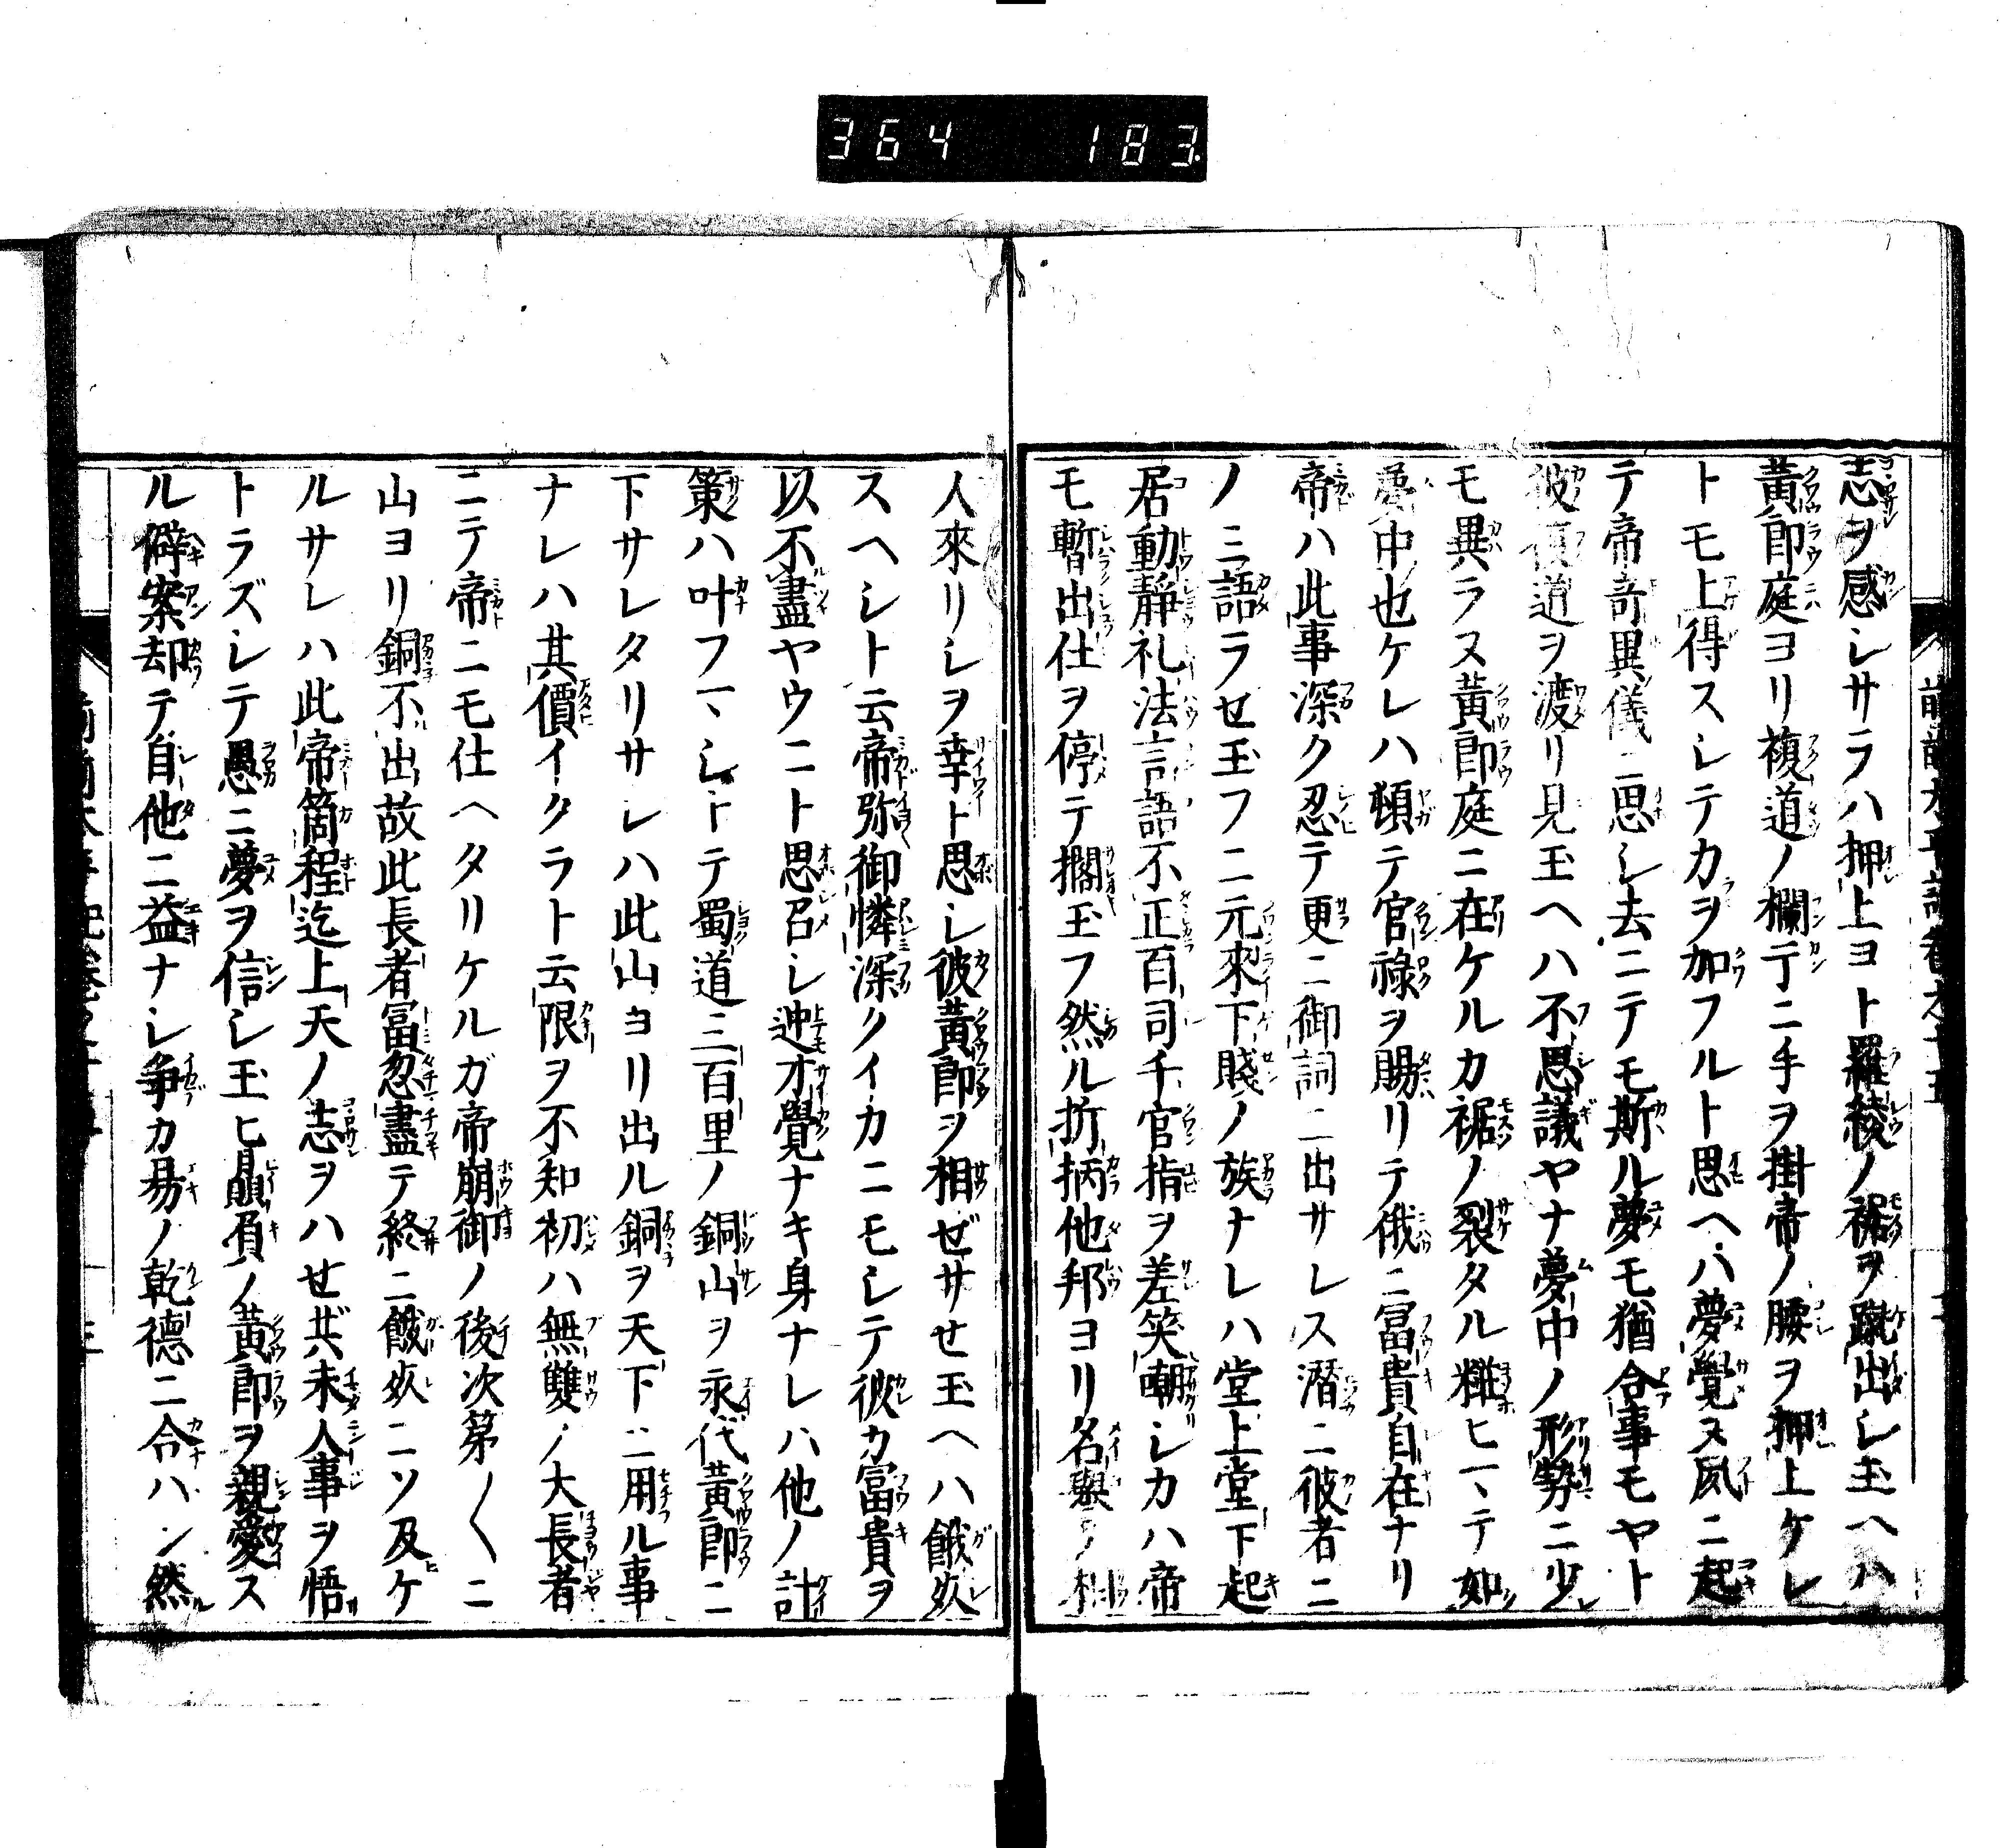 364 183
志ヲ感シサラハ押上ヨト羅綾ノ裾ヲ蹴出シ玉ヘハ
黄郎庭ヨリ複道ノ欄干ニ手ヲ掛帝ノ腰ヲ押上ケレ
トモ上得スシテカヲ加フルト思ヘハ夢覚ヌ夙ニ起
テ帝竒異儀ニ思シ去ニテモ斯ル夢モ猶合事モヤト
彼復道ヲ渡リ見玉ヘハ不思議ヤナ夢中ノ形勢ニ少
モ異ラス黄郎庭ニ在ケルカ裾ノ裂タル糚ヒ一、テ如
夢中也ケレハ頓テ官禄ヲ賜リテ俄ニ冨貴自在ナリ
帝ハ此事深ク忍テ更ニ御詞ニ出サレス潛ニ彼者ニ
ノミ語ラセ玉フニ元來下賤ノ族ナレハ堂上堂下起
居動静礼法言語不正百司千官指ヲ差笑嘲シカハ帝
モ暫出仕ヲ停テ擱玉フ然ル折柄他邦ヨリ名譽ノ相
人來リシヲ幸ト思シ彼黄郎ヲ相ゼサセ玉ヘハ餓死
スヘシト云帝弥御憐深クイカニモシテ彼カ冨貴ヲ
以不盡ヤウニト思召シ迚オ覺ナキ身ナレハ他ノ計
策ハ叶フ一、シトテ蜀道三百里ノ銅山ヲ永代黄郎ニ
下サレタリサレハ此山ヨリ出ル銅ヲ天下ニ用ル事
ナレハ其價イクラト云限ヲ不知初ハ無雙ノ大長者
ニテ帝ニモ仕ヘタリケルガ帝崩御ノ後次第〱ニ
山ヨリ銅不出故此長者冨忽盡テ終ニ餓死ニソ及ケ
ルサレハ此帝箇程迄上天ノ志ヲハセ共未人事ヲ悟
トラズシテ愚ニ夢ヲ信シ玉ヒ贔負ノ黄郎ヲ親愛ス
ル僻案却テ自他ニ益ナシ争カ易ノ乾德ニ合ハン然